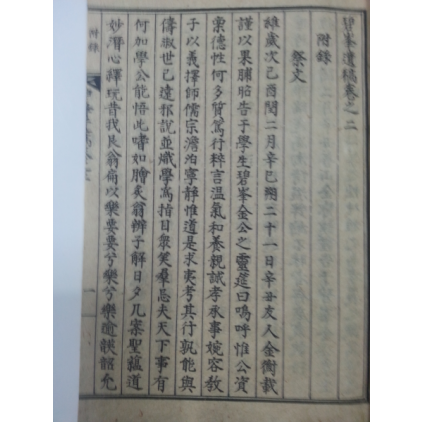 碧峯遺稿卷之二
附錄
祭文
維歲次己酉閏二月辛巳朔二十一日辛丑友人金衡載
謹以果脯昭告于學生碧峯金公之靈筵曰嗚呼惟公資
稟德性何多質篤行粹言溫氣和養親誠孝承事婉容敎
子以義擇師儒宗澹泊寧靜惟道是求夷考其行孰能與
儔叔世已遠邪說並熾學爲指目衆笑羣忌夫天下事有
何加學公能悟此嗜如膾炙翁辨子解日夕几案聖蘊道
妙潛心繹玩昔我良翁扁以樂要要兮樂兮樂
附錄